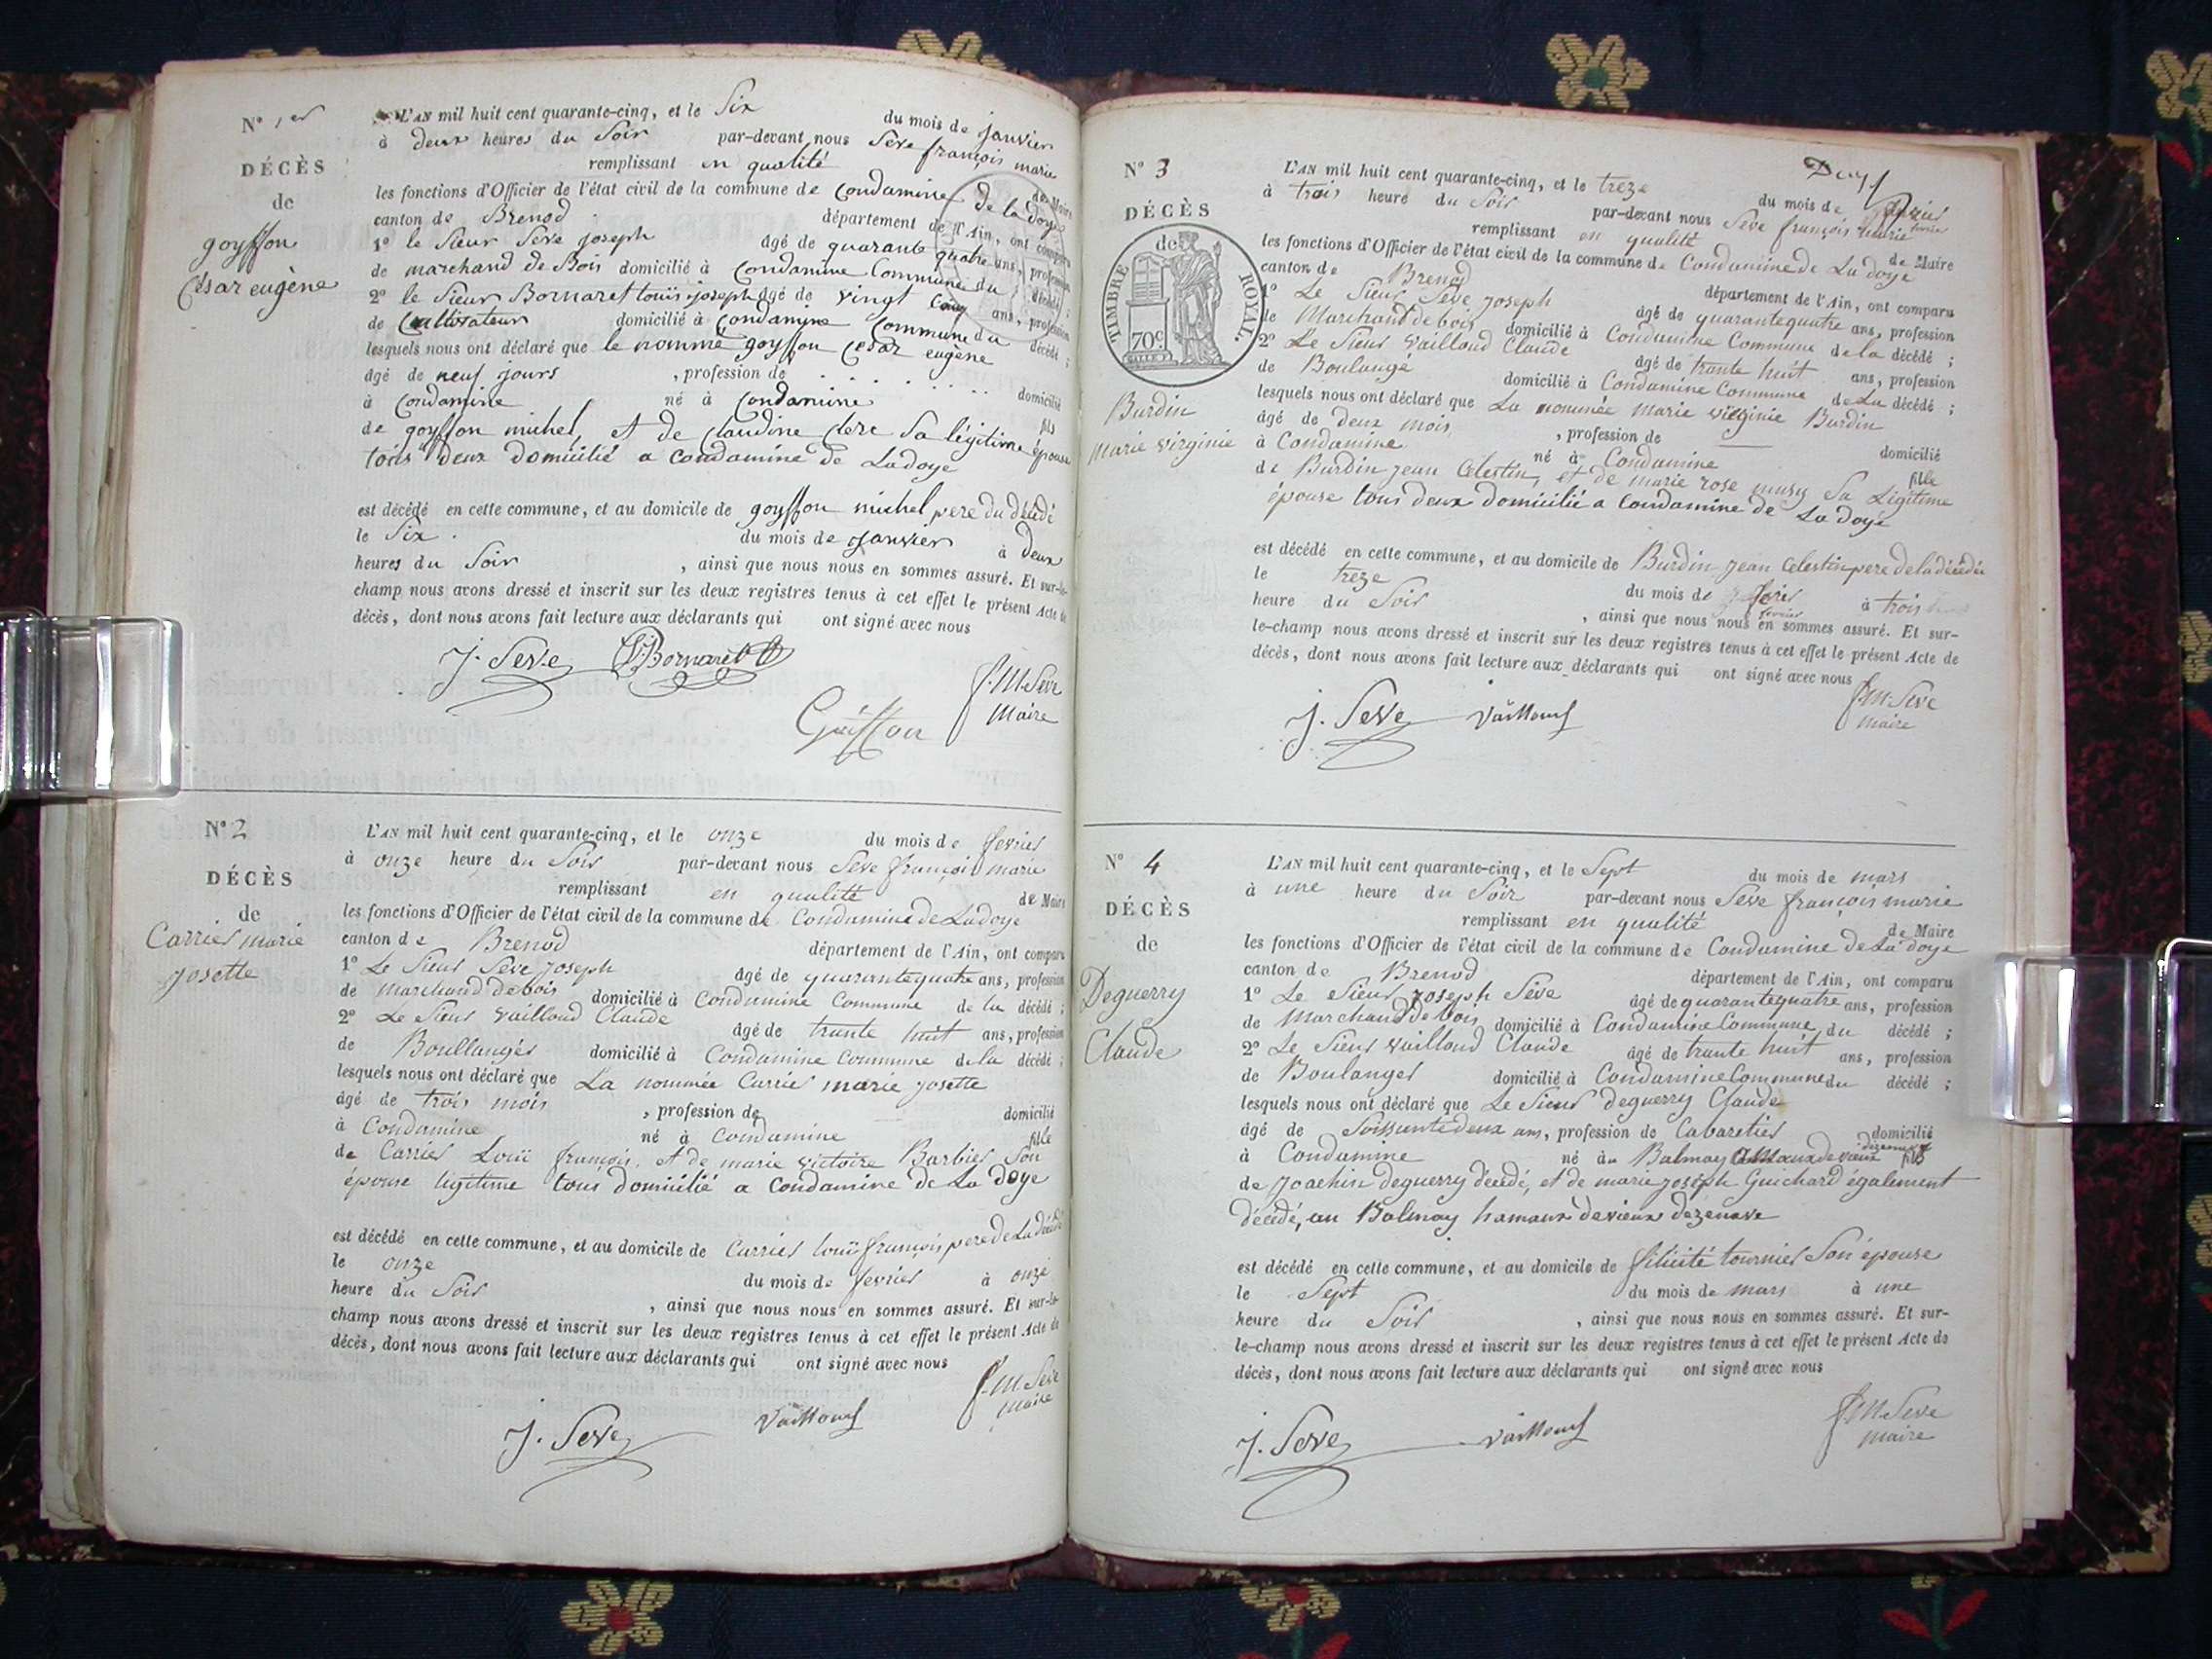 N° 1er
DÉCÈS
de
goyffon
César eugène
L'AN mil huit cent quarante-cinq, et le Six du mois de janvier
à deux heures du Soir par-devant nous Seve françois marie
remplissant en qualité de Maire
les fonctions d'Officier de l'état civil de la commune de Condamine de la doye
canton de Brenod département de l'Ain, ont comparu
1° le Sieur Seve joseph âgé de quarante quatre ans, profession
de marchand de Bois domicilié à Condamine Commune du décédé ;
2° le Sieur Bornaret louis joseph âgé de vingt cinq ans, profession
de Cultivateur domicilié à Condamine Commune du décédé ;
lesquels nous ont déclaré que le nommé goyffon Cesar eugène
âgé de neuf jours , profession de domicilié
à Condamine né à Condamine fils
de goyffon michel, et de Claudine Clere Sa légitime épouse
tous deux domicilié a Condamine de Ladoye
est décédé en cette commune, et au domicile de goyffon michel pere du décédé
le Six du mois de janvier à deux
heures du Soir , ainsi que nous nous en sommes assuré. Et sur-le-
champ nous avons dressé et inscrit sur les deux registres tenus à cet effet le présent Acte de
décès, dont nous avons fait lecture aux déclarants qui ont signé avec nous
J. Seve Bornaret
f. M. Seve
Maire
N° 2
DÉCÈS
de
Carrier marie
josette
L'AN mil huit cent quarante-cinq, et le onze du mois de fevrier
à onze heure du Soir par-devant nous Seve françois marie
remplissant en qualité de Maire
les fonctions d'Officier de l'état civil de la commune de Condamine de Ladoye
canton de Brenod département de l'Ain, ont comparu
1° Le Sieur Seve joseph âgé de quarantequatre ans, profession
de marchand debois domicilié à Condamine Commune de la décédé ;
2° Le Sieur Vailloud Claude âgé de trante huit ans, profession
de Boullanger domicilié à Condamine Commune de la décédé ;
lesquels nous ont déclaré que La nommée Carrier marie josette
âgé de trois mois , profession de domicilié
à Condamine né à Condamine fille
de Carrier Louii françois, et de marie victoire Barbier Son
épouse légitime tous domicilié a Condamine de La Doye
est décédé en cette commune, et au domicile de Carrier louii françois pere de La décédé
le onze du mois de fevrier à onze
heure du Soir , ainsi que nous nous en sommes assuré. Et sur-le-
champ nous avons dressé et inscrit sur les deux registres tenus à cet effet le présent Acte de
décès, dont nous avons fait lecture aux déclarants qui ont signé avec nous
J. Seve Vailloud
f. M. Seve
maire
N° 3
DÉCÈS
de
TIMBRE ROYAL.
70c
Burdin
Marie virginie
L'AN mil huit cent quarante-cinq, et le treze du mois de
à trois heure du Soir par-devant nous Seve françois marie
remplissant en qualité de Maire
les fonctions d'Officier de l'état civil de la commune de Condamine de La doye
canton de Brenod département de l'Ain, ont comparu
1° Le Sieur Seve joseph âgé de quarantequatre ans, profession
de Marchand de bois domicilié à Condamine Commune de la décédé ;
2° Le Sieur Vailloud Claude âgé de trante huit ans, profession
de Boulangé domicilié à Condamine Commune de La décédé ;
lesquels nous ont déclaré que La nommée marie virginie Burdin
âgé de deux mois , profession de domicilié
à Condamine né à Condamine fille
de Burdin jean Celestin, et de marie rose musy Sa Légitime
épouse tous deux domicilié a Condamine de La doye
est décédé en cette commune, et au domicile de Burdin jean Celestin pere de la décédée
le treze du mois de fevrier à trois
heure du Soir , ainsi que nous nous en sommes assuré. Et sur-
le-champ nous avons dressé et inscrit sur les deux registres tenus à cet effet le présent Acte de
décès, dont nous avons fait lecture aux déclarants qui ont signé avec nous
J. Seve Vailloud
f. M. Seve
maire
N° 4
DÉCÈS
de
Deguerry
Claude
L'AN mil huit cent quarante-cinq, et le Sept du mois de mars
à une heure du Soir par-devant nous Seve françois marie
remplissant en qualité de Maire
les fonctions d'Officier de l'état civil de la commune de Condamine de La doye
canton de Brenod département de l'Ain, ont comparu
1° Le Sieur Joseph Séve âgé de quarantequatre ans, profession
de Marchand de bois domicilié à Condamine Commune du décédé ;
2° Le Sieur Vailloud Claude âgé de trante huit ans, profession
de Boulanger domicilié à Condamine Commune du décédé ;
lesquels nous ont déclaré que Le Sieur deguerry Claude
âgé de Soissante deux ans, profession de Cabaretier domicilié
à Condamine né au Balmay fils
de joachin deguerry décédé, et de marie joséph Guichard également
décédé, au Balmay hamaux devieux dizenave
est décédé en cette commune, et au domicile de félicité tournier Son épouse
le Sept du mois de mars à une
heure du Soir , ainsi que nous nous en sommes assuré. Et sur-
le-champ nous avons dressé et inscrit sur les deux registres tenus à cet effet le présent Acte de
décès, dont nous avons fait lecture aux déclarants qui ont signé avec nous
J. Seve Vailloud
f. M. Seve
maire